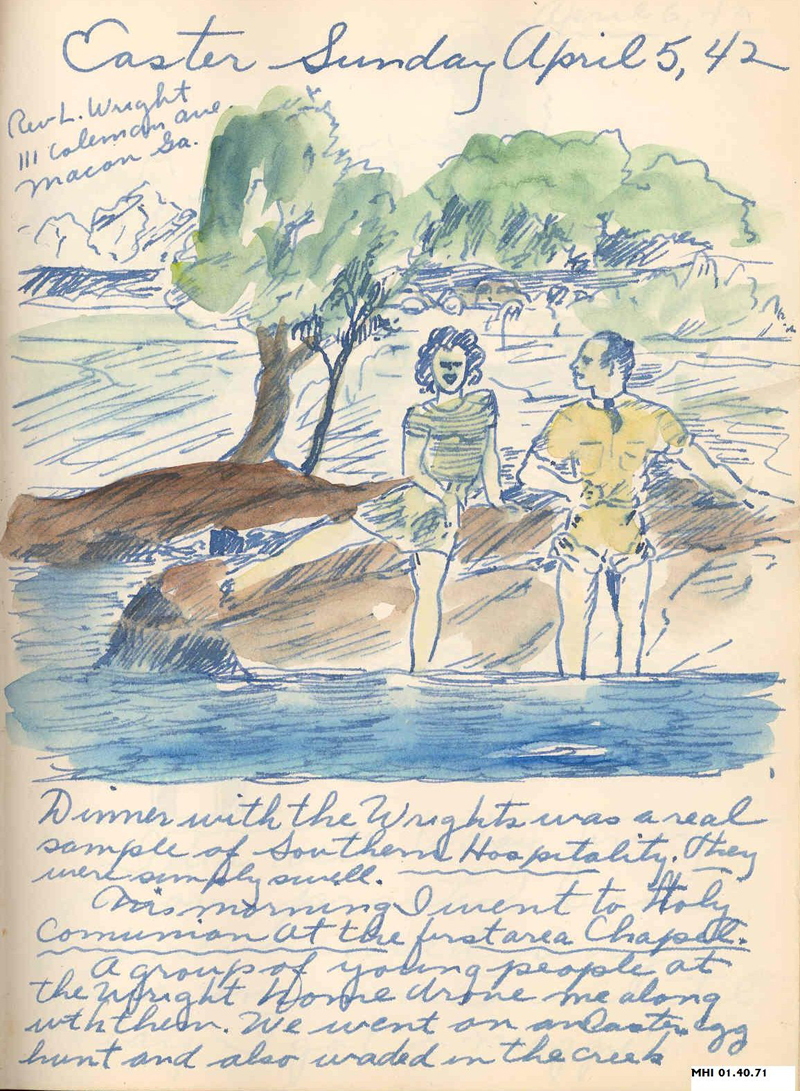 Easter Sunday April 5, 42
Rev L. Wright
111 Coleman ave.
Macon Ga.
Dinner with the Wrights was a real
sample of Southern Hospitality. They
were simply swell.
This morning I went to Holy
Comunion at the first area Chapel.
A group of young people at
the Wright Home drove me along
with them. We went on an Easter egg
hunt and also waded in the creek
MHI 01.40.71